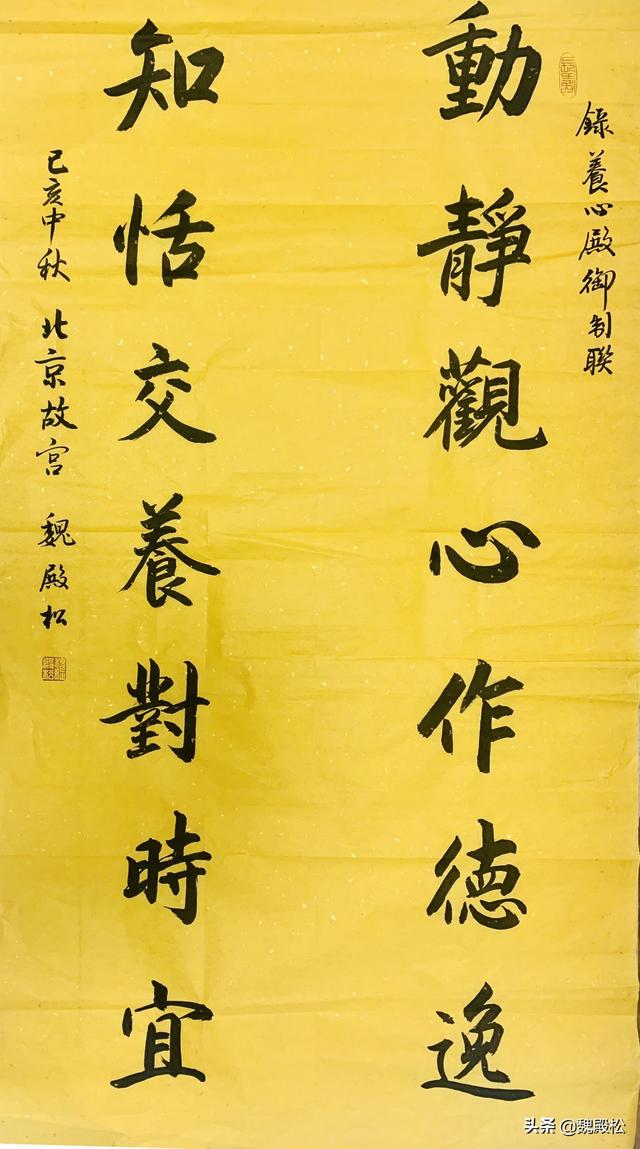 錄養心殿御制聯
動靜觀心作德逸
知恬交養對時宜
己亥中秋 北京故宮 魏殿松
头条 @魏殿松